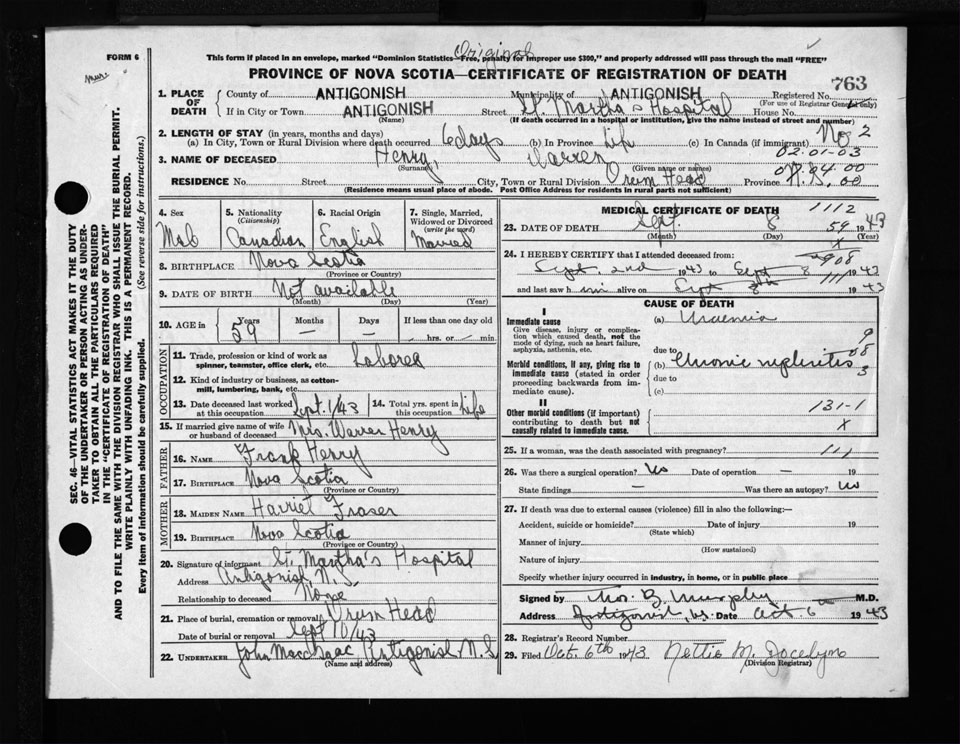 Original
FORM 6 This form if placed in an envelope, marked "Dominion Statistics—Free, penalty for improper use $300," and properly addressed will pass through the mail "FREE"
PROVINCE OF NOVA SCOTIA—CERTIFICATE OF REGISTRATION OF DEATH 763
1. PLACE OF DEATH County of ANTIGONISH Municipality of ANTIGONISH Registered No.
(For use of Registrar General only)
If in City or Town ANTIGONISH Street St. Martha's Hospital House No.
(Name) (If death occurred in a hospital or institution, give the name instead of street and number)
2. LENGTH OF STAY (in years, months and days)
(a) In City, Town or Rural Division where death occurred 6 days (b) In Province life (c) In Canada (if immigrant) No 2
02-01-03
3. NAME OF DECEASED Henry, Warren
(Surname) (Given name or names) 07.84.00
RESIDENCE No. Street City, Town or Rural Division Drum Head Province N.S. 00
(Residence means usual place of abode. Post Office Address for residents in rural parts not sufficient)
SEC. 46—VITAL STATISTICS ACT MAKES IT THE DUTY
OF THE UNDERTAKER OR PERSON ACTING AS UNDER-
TAKER TO OBTAIN ALL THE PARTICULARS REQUIRED
IN THE "CERTIFICATE OF REGISTRATION OF DEATH"
AND TO FILE THE SAME WITH THE DIVISION REGISTRAR WHO SHALL ISSUE THE BURIAL PERMIT.
WRITE PLAINLY WITH UNFADING INK. THIS IS A PERMANENT RECORD.
Every item of information should be carefully supplied. (See reverse side for instructions.)
4. Sex Male
5. Nationality (Citizenship) Canadian
6. Racial Origin English
7. Single, Married, Widowed or Divorced (write the word) Married
8. BIRTHPLACE Nova Scotia
(Province or Country)
9. DATE OF BIRTH Not available
(Month) (Day) (Year)
10. AGE in Years Months Days If less than one day old
59 — — hrs. or min.
OCCUPATION
11. Trade, profession or kind of work as spinner, teamster, office clerk, etc. Laborer
12. Kind of industry or business, as cotton-mill, lumbering, bank, etc.
13. Date deceased last worked at this occupation Sept. 1/43 14. Total yrs. spent in this occupation Life
15. If married give name of wife or husband of deceased Mrs. Warren Henry
FATHER
16. NAME Frank Henry
17. BIRTHPLACE Nova Scotia
(Province or Country)
MOTHER
18. MAIDEN NAME Harriet Fraser
19. BIRTHPLACE Nova Scotia
(Province or Country)
20. Signature of informant St. Martha's Hospital
Address Antigonish, N.S.
Relationship to deceased None
21. Place of burial, cremation or removal Drum Head
Date of burial or removal Sept 10/43
22. UNDERTAKER John MacIsaac Antigonish N.S
(Name and address)
MEDICAL CERTIFICATE OF DEATH 1112
23. DATE OF DEATH Sept. 8 59 1943
(Month) (Day) (Year)
X
24. I HEREBY CERTIFY that I attended deceased from: 908
Sept. 2nd 1943 to Sept 8 111 1943
and last saw him alive on Sept 8th 1943
CAUSE OF DEATH
I
Immediate cause (a) Uraemia
Give disease, injury or complication which caused death, not the mode of dying, such as heart failure, asphyxia, asthenia, etc.
due to 9
Morbid conditions, if any, giving rise to immediate cause (stated in order proceeding backwards from immediate cause). (b) Chronic nephritis 08
3
due to
(c)
II
Other morbid conditions (if important) contributing to death but not causally related to immediate cause. 131-1
X
25. If a woman, was the death associated with pregnancy? 111
26. Was there a surgical operation? No Date of operation — 19
State findings — Was there an autopsy? No
27. If death was due to external causes (violence) fill in also the following:—
Accident, suicide or homicide? Date of injury 19
(State which)
Manner of injury
(How sustained)
Nature of injury
Specify whether injury occurred in industry, in home, or in public place
Signed by Murphy M.D.
Address Antigonish, N.S. Date Oct. 6th 1943
28. Registrar's Record Number
29. Filed Oct. 6th 1943 Nettie M. Jocelyn
(Division Registrar)